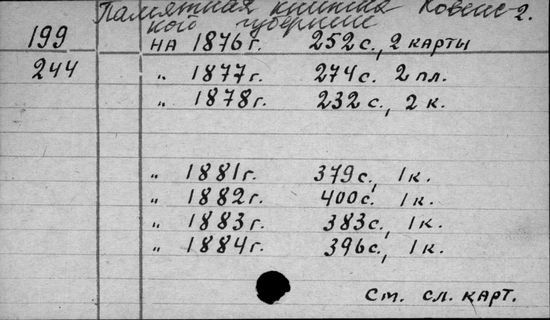 Памятная книжка Ковенс- 2.
кой губернии
199 на 1876 г. 252 с., 2 карты
244 " 1877 г. 274 с. 2 пл.
" 1878 г. 232 с., 2 к.
" 1881 г. 379 с., 1 к.
" 1882 г. 400 с. 1 к.
" 1883 г. 383 с., 1 к.
" 1884 г. 396 с., 1 к.
См. сл. карт.